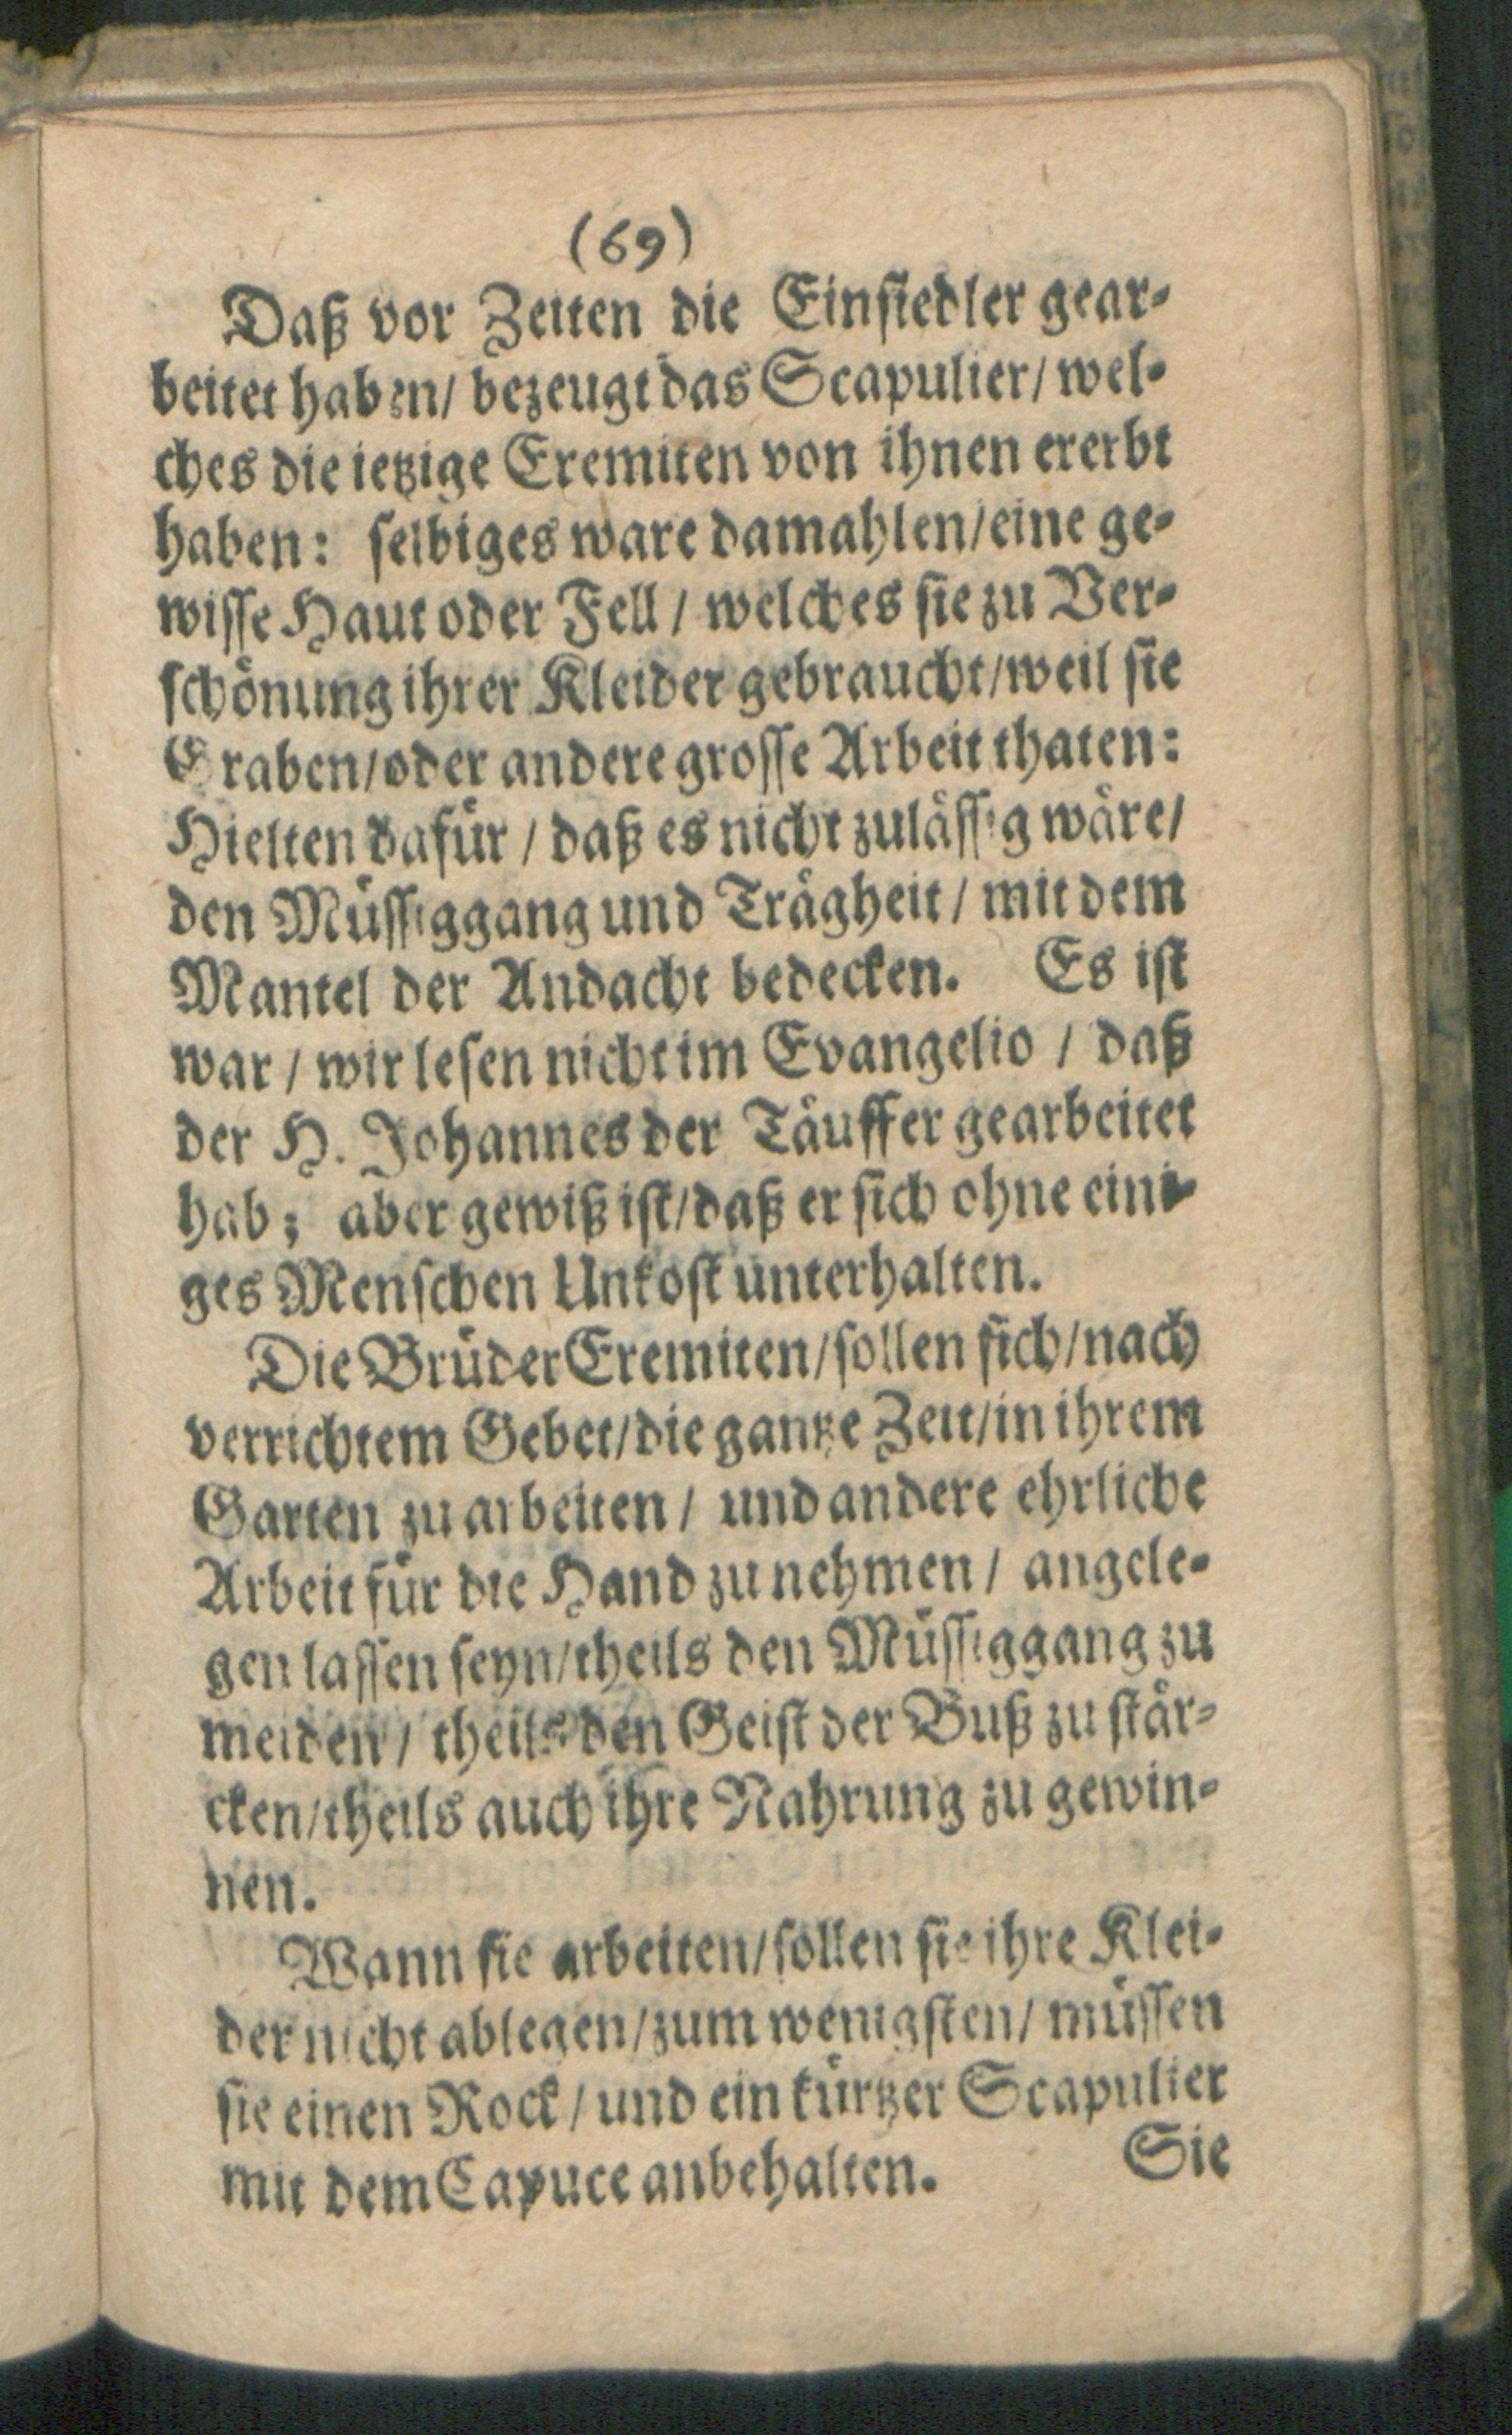 (69)
Daß vor Zeiten die Einsiedler gear-
beitet haben/ bezeugt das Scapulier/ wel-
ches die ietzige Eremiten von ihnen ererbt
haben: selbiges ware damahlen/eine ge-
wisse Haut oder Fell / welches sie zu Ver-
schönung ihrer Kleider gebraucht/weil sie
Graben/oder andere grosse Arbeit thaten:
Hielten dafür / daß es nicht zulässig wäre/
den Müssiggang und Trägheit / mit dem
Mantel der Andacht bedecken. Es ist
war / wir lesen nicht im Evangelio / daß
der H. Johannes der Täuffer gearbeitet
hab; aber gewiß ist/daß er sich ohne eini-
ges Menschen Unkost unterhalten.
Die Brüder Eremiten/sollen sich/nach
verrichtem Gebet/die gantze Zeit/in ihrem
Garten zu arbeiten / und andere ehrliche
Arbeit für die Hand zu nehmen / angele-
gen lassen seyn/theils den Müssiggang zu
meiden / theils den Geist der Buß zu stär-
cken/theils auch ihre Nahrung zu gewin-
nen.
Wann sie arbeiten/sollen sie ihre Klei-
der nicht ablegen/zum wenigsten/ müssen
sie einen Rock / und ein kürtzer Scapulier
mit dem Capuce anbehalten. Sie